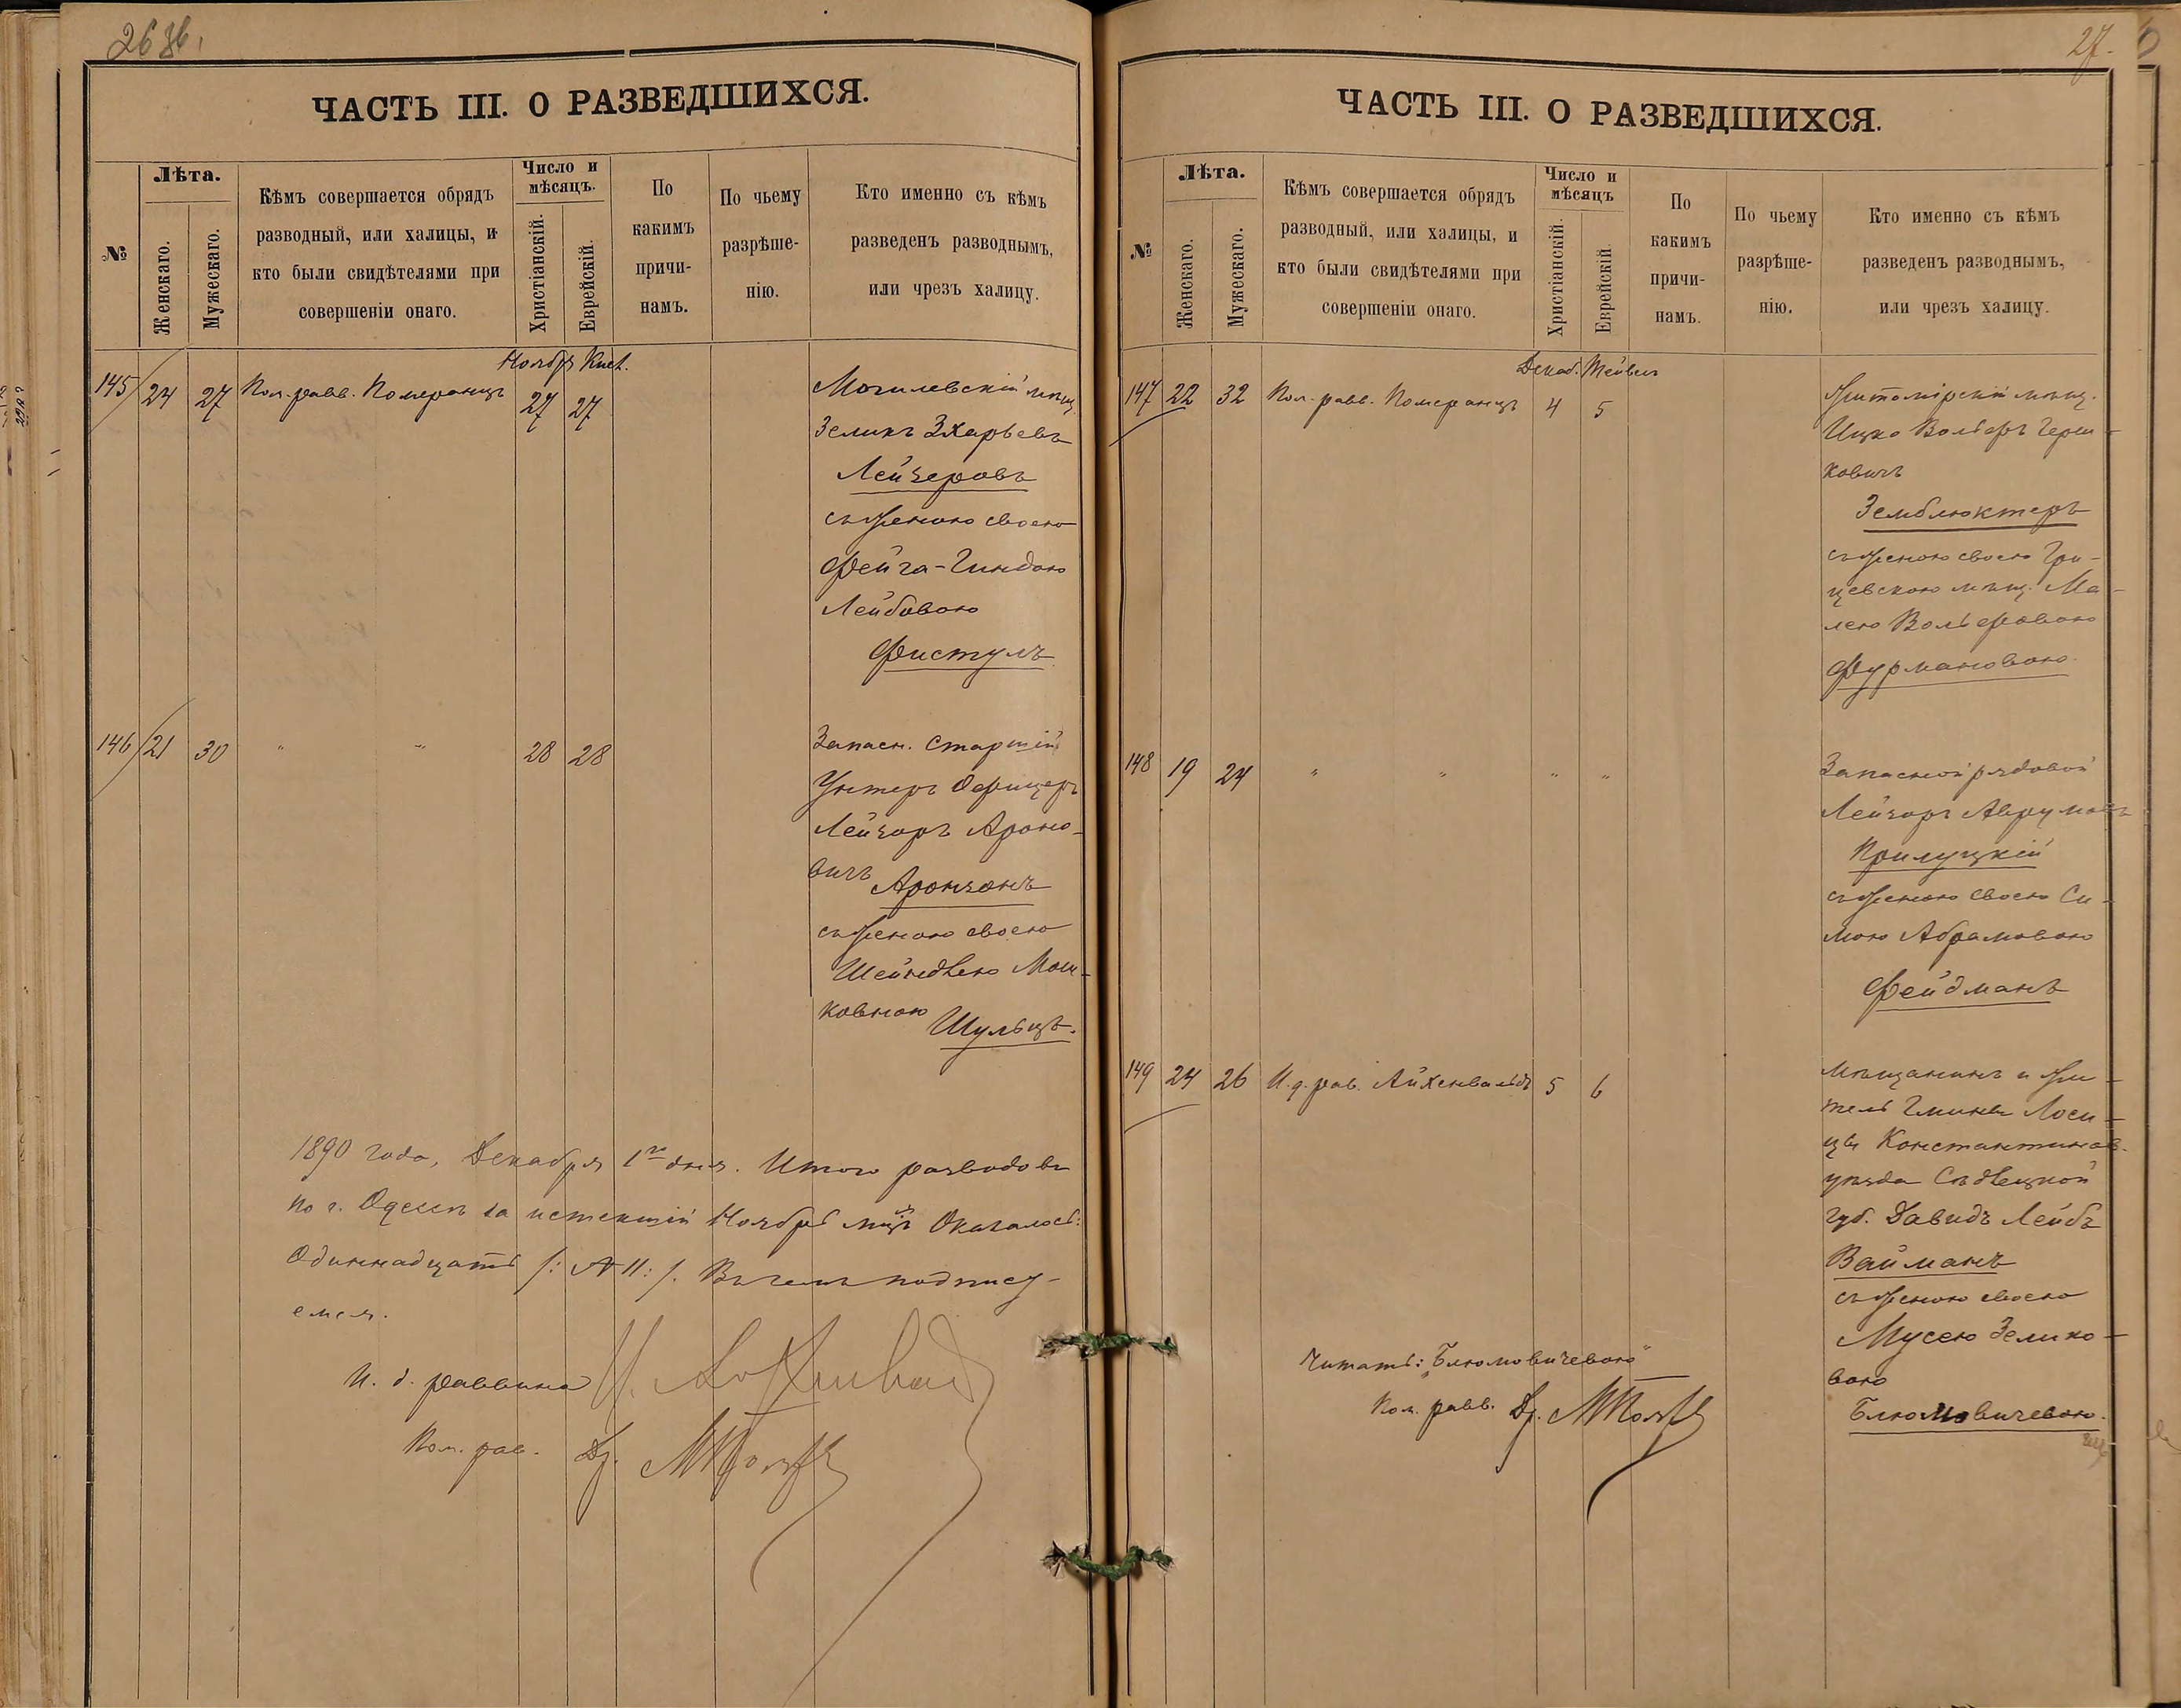 26 об.
ЧАСТЬ III. О РАЗВЕДШИХСЯ.
№
Лѣта.
Женскаго.
Мужескаго.
Кѣмъ совершается обрядъ
разводный, или халицы, и
кто были свидѣтелями при
совершеніи онаго.
Число и
мѣсяцъ.
Христіанскій.
Еврейскій.
По
какимъ
причи-
намъ.
По чьему
разрѣше-
нію.
Кто именно съ кѣмъ
разведенъ разводнымъ,
или чрезъ халицу.
Ноябрь Кисл.
145 24 27 Пом. равв. Померанцъ 27 27
Могилевскій мѣщ.
Зеликъ Зхарьевъ
Лейзеровъ
съ женою своею
Фейга-Гиндою
Лейбовою
Фистулъ
146 21 30 " " 28 28
Запасн. Старшій
Унтеръ Офицеръ
Лейзоръ Ароно-
вичъ Аронзонъ
съ женою своею
Шейндлею Мош-
ковною Шульцъ.
1890 года, Декабря 1го дня. Итого разводовъ
по г. Одессѣ за истекшій Ноябрь мцъ Оказалось:
Одиннадцать /: № 11: /. Въ чемъ подпису-
емся.
И. д. раввина
Пом. рав. Др.
27.
ЧАСТЬ III. О РАЗВЕДШИХСЯ.
№
Лѣта.
Женскаго.
Мужескаго.
Кѣмъ совершается обрядъ
разводный, или халицы, и
кто были свидѣтелями при
совершеніи онаго.
Число и
мѣсяцъ
Христіанскій.
Еврейскій.
По
какимъ
причи-
намъ.
По чьему
разрѣше-
нію.
Кто именно съ кѣмъ
разведенъ разводнымъ,
или чрезъ халицу.
Декаб. Тейвес
147 22 32 Пом. равв. Померанцъ 4 5
Житомірскій мѣщ.
Ицко Вольфъ Герш-
ковичъ
Земблюктеръ
съ женою своею Гри-
цевскою мѣщ. Ма-
лею Вольфовою
Фурмановою
148 19 24 " " " "
Запасной рядовой
Лейзоръ Аврумовъ
Прилуцкій
съ женою своею Си-
мою Абрамовою
Фейдманъ
149 24 26 И. д. рав. Айхенвальдъ 5 6
Мѣщанинъ и жи-
тель Гмины Лоси-
цы Константинов.
уѣзда Сѣдлецкой
губ. Давидъ Лейбъ
Вайманъ
съ женою своею
Мусею Зелико-
вою
Блюмовичевою.
Читать: „Блюмовичевою"
Пом. равв. Др.